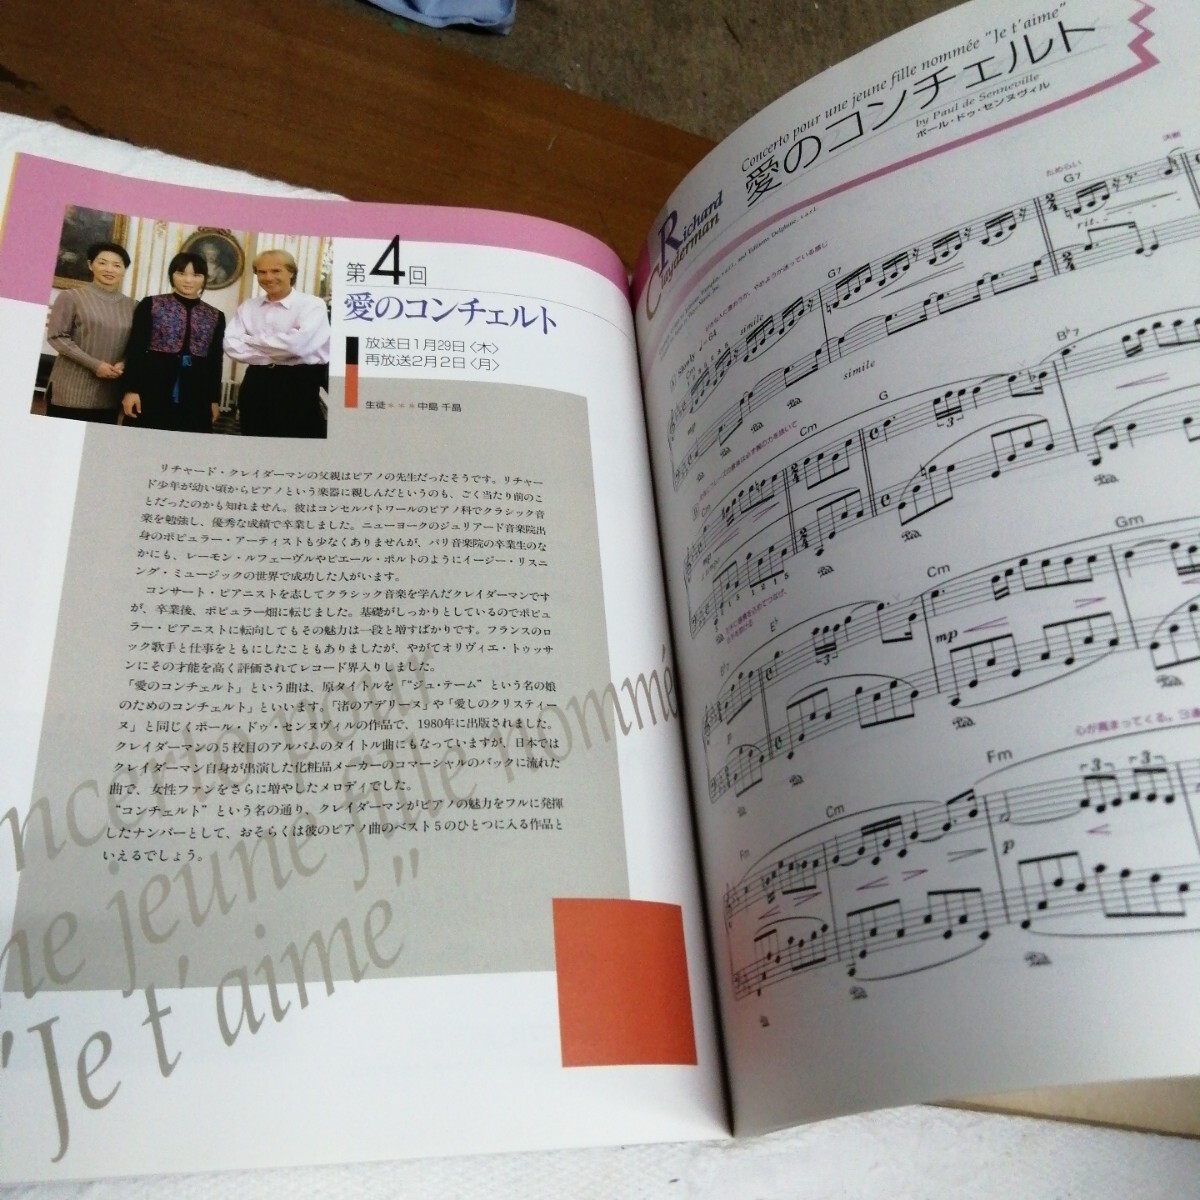 第4回
愛のコンチェルト
放送日1月29日〈木〉
再放送2月2日〈月〉
生徒●●●中島 千晶
リチャード・クレイダーマンの父親はピアノの先生だったそうです。リチャー
ド少年が幼い頃からピアノという楽器に親しんだというのも、ごく当たり前のこ
とだったのかも知れません。彼はコンセルバトワールのピアノ科でクラシック音
楽を勉強し、優秀な成績で卒業しました。ニューヨークのジュリアード音楽院出
身のポピュラー・アーティストも少なくありませんが、パリ音楽院の卒業生のな
かにも、レーモン・ルフェーヴルやピエール・ポルトのようにイージー・リスニ
ング・ミュージックの世界で成功した人がいます。
コンサート・ピアニストを志してクラシック音楽を学んだクレイダーマンです
が、卒業後、ポピュラー畑に転じました。基礎がしっかりとしているのでポピュ
ラー・ピアニストに転向してもその魅力は一段と増すばかりです。フランスのロ
ック歌手と仕事をともにしたこともありましたが、やがてオリヴィエ・トゥッサ
ンにその才能を高く評価されてレコード界入りしました。
「愛のコンチェルト」という曲は、原タイトルを「“ジュ・テーム”という名の娘
のためのコンチェルト」といいます。「渚のアデリーヌ」や「愛しのクリスティー
ヌ」と同じくポール・ドゥ・センヌヴィルの作品で、1980年に出版されました。
クレイダーマンの5枚目のアルバムのタイトル曲にもなっていますが、日本では
クレイダーマン自身が出演した化粧品メーカーのコマーシャルのバックに流れた
曲で、女性ファンをさらに増やしたメロディでした。
“コンチェルト”という名の通り、クレイダーマンがピアノの魅力をフルに発揮
したナンバーとして、おそらくは彼のピアノ曲のベスト5のひとつに入る作品と
いえるでしょう。
ncerto pour
ne jeune fille nommé
"Je t'aime"
Concerto pour une jeune fille nommée "Je t'aime"
愛のコンチェルト
by Paul de Senneville
ポール・ドゥ・センヌヴィル
Richard
Clayderman
ためらい
G7
rit.
G7
simile
Cm
mp
simile
Cm
G
B♭7
mp
B♭7
E♭
Cm
Gm
mp
p
心が高まってくる。
Fm
Cm
Fm
p